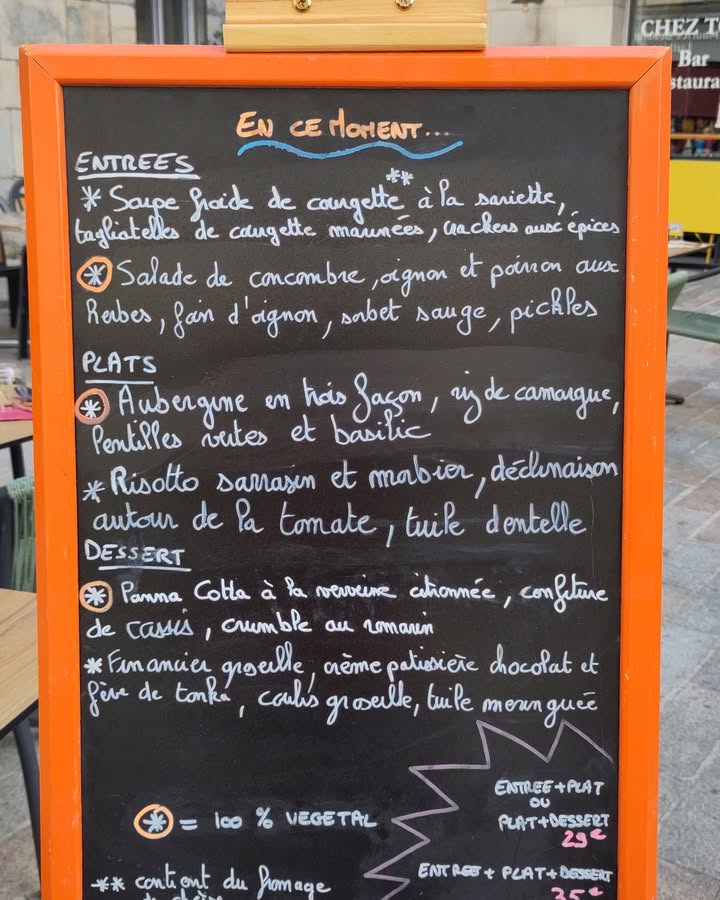 CHEZ T
Bar
staura
EN CE MOMENT...
ENTREES
* Soupe froide de courgette** à la sariette,
tagliatelles de courgette marinées, crackers aux épices
* Salade de concombre, oignon et poivron aux
herbes, foin d'oignon, sorbet sauge, pickles
PLATS
* Aubergine en trois façon, riz de camargue,
lentilles vertes et basilic
* Risotto sarrasin et morbier, déclinaison
autour de la tomate, tuile dentelle
DESSERT
* Panna Cotta à la verveine citronnée, confiture
de cassis, crumble au romarin
* Financier groseille, crème patissière chocolat et
fève de tonka, coulis groseille, tuile meringuée
* = 100 % VEGETAL
ENTREE+PLAT
OU
PLAT+DESSERT
29€
ENTREE + PLAT + DESSERT
35€
** contient du fromage